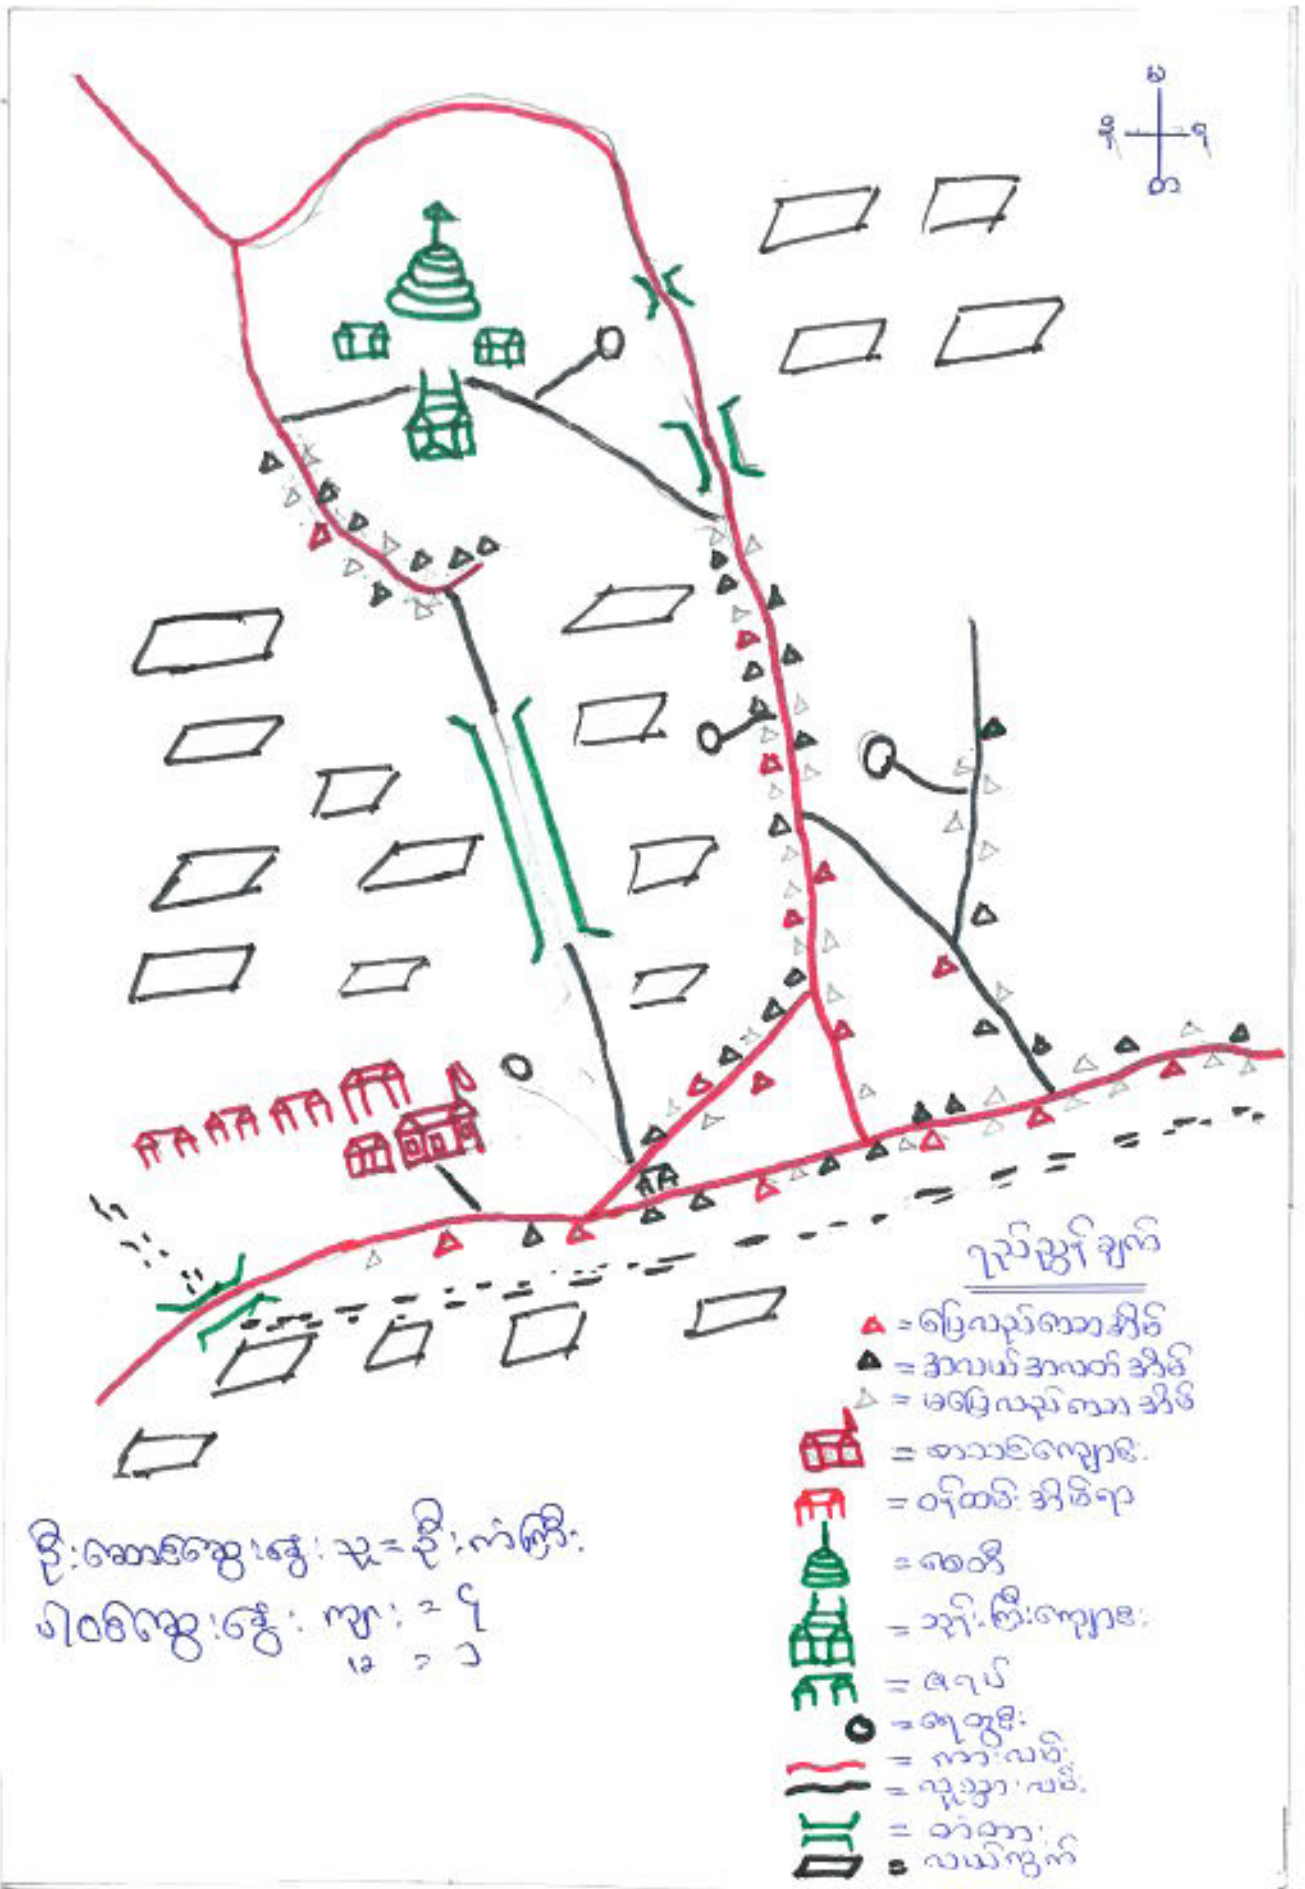 မ
န
ရ
တ
ရည်ညွှန်းချက်
= ပြေလည်သောအိမ်
= အလယ်အလတ်အိမ်
= မပြေလည်သောအိမ်
= စာသင်ကျောင်း
= ဝန်ထမ်းအိမ်ရာ
= စေတီ
= ဘုန်းကြီးကျောင်း
= ဇရပ်
= ရေတွင်း
= ကားလမ်း
= လူသွားလမ်း
= တံတား
= လယ်ကွက်
ဦးဆောင်ဆွေးနွေးသူ = ဦး
ပါဝင်ဆွေးနွေး ကျား = ၄
မ = ၁